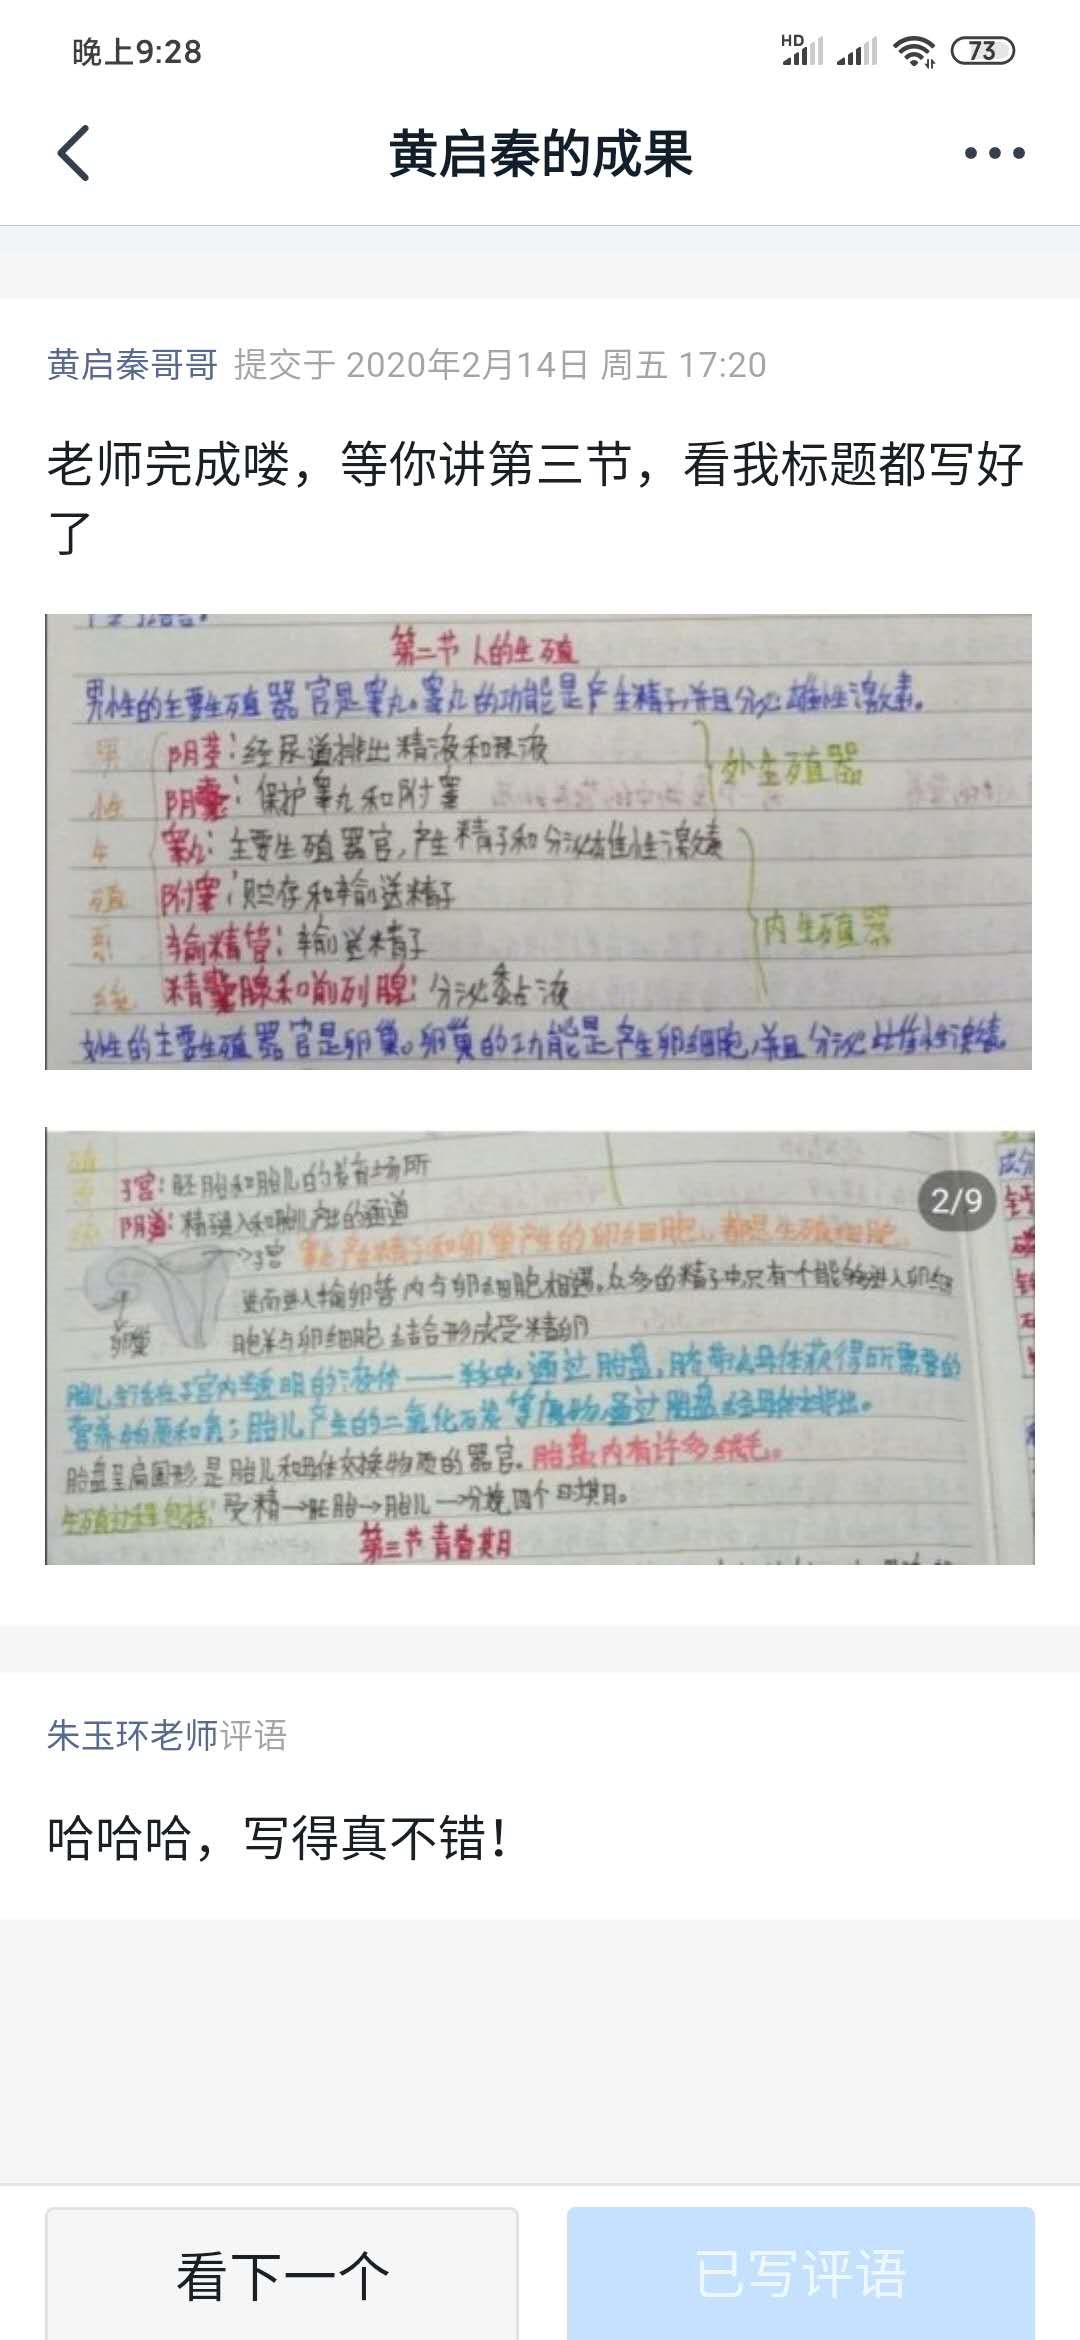 晚上9:28
HD
73
黄启秦的成果
黄启秦哥哥 提交于 2020年2月14日 周五 17:20
老师完成喽，等你讲第三节，看我标题都写好
了
第二节 人的生殖
男性的主要生殖器官是睾丸。睾丸的功能是产生精子并且分泌雄性激素。
男性生殖系统
阴茎：经尿道排出精液和尿液
外生殖器
阴囊：保护睾丸和附睾
睾丸：主要生殖器官，产生精子和分泌雄性激素
附睾：贮存和输送精子
内生殖器
输精管：输送精子
精囊腺和前列腺：分泌黏液
女性的主要生殖器官是卵巢。卵巢的功能是产生卵细胞，并且分泌雌性激素。
2/9
子宫：胚胎和胎儿的发育场所
阴道：精子进入和胎儿产出的通道
子宫
睾丸产生精子和卵巢产生的卵细胞，都是生殖细胞。
进而进入输卵管内与卵细胞相遇。众多的精子中只有一个能够进入卵细
卵巢
胞并与卵细胞结合形成受精卵
胎儿生活在子宫内半透明的液体——羊水中，通过胎盘，脐带从母体获得所需要的
营养物质和氧；胎儿产生的二氧化碳等废物通过胎盘经母体排出。
胎盘呈扁圆形是胎儿和母体交换物质的器官。胎盘内有许多绒毛。
生殖过程包括：受精→胚胎→胎儿→分娩四个时期。
第三节 青春期
朱玉环老师评语
哈哈哈，写得真不错！
看下一个
已写评语